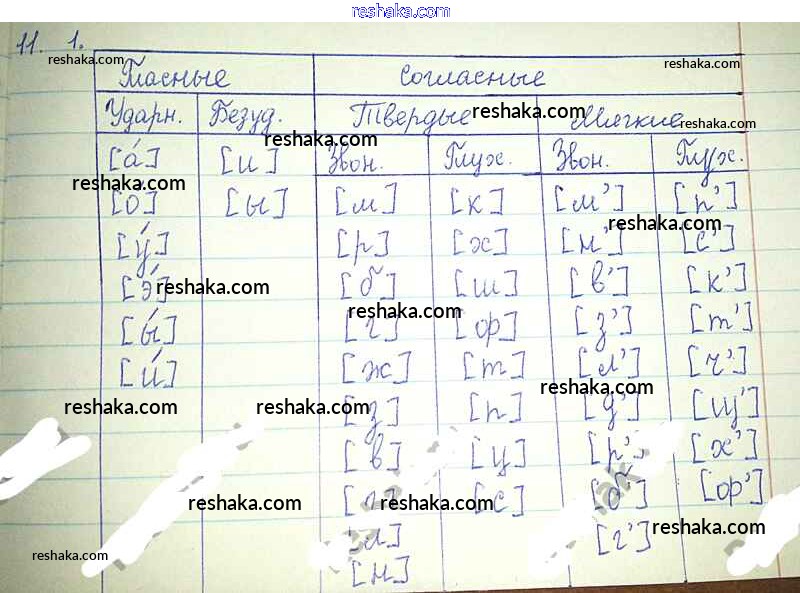 reshaka.com
11. 1.
reshaka.com reshaka.com
Гласные Согласные
Ударн. Безуд. Твердые Мягкие
reshaka.com reshaka.com
reshaka.com
[а́] [и] Звон. Глух. Звон. Глух.
reshaka.com
[о] [ы] [м] [к] [м’] [п’]
reshaka.com
[у́] [р] [х] [н’] [с’]
[э́] [б] [ш] [в’] [к’]
reshaka.com reshaka.com
[ы́] [г] [ф] [з’] [т’]
[и́] [ж] [т] [л’] [ч’]
reshaka.com
reshaka.com reshaka.com
[з] [п] [д’] [щ’]
[в] [ц] [р’] [х’]
[с] [б’] [ф’]
reshaka.com reshaka.com
reshaka.com
[л] [г’]
reshaka.com
[н]